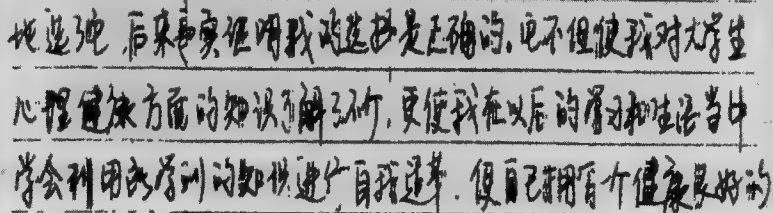 地选择,后来事实证明我的选择是正确的。它不但使我对大学生
心理健康方面的知识了解了不少,更使我在以后的学习和生活当中
学会利用所学到的知识进行自我调节,使自己拥有个健康良好的